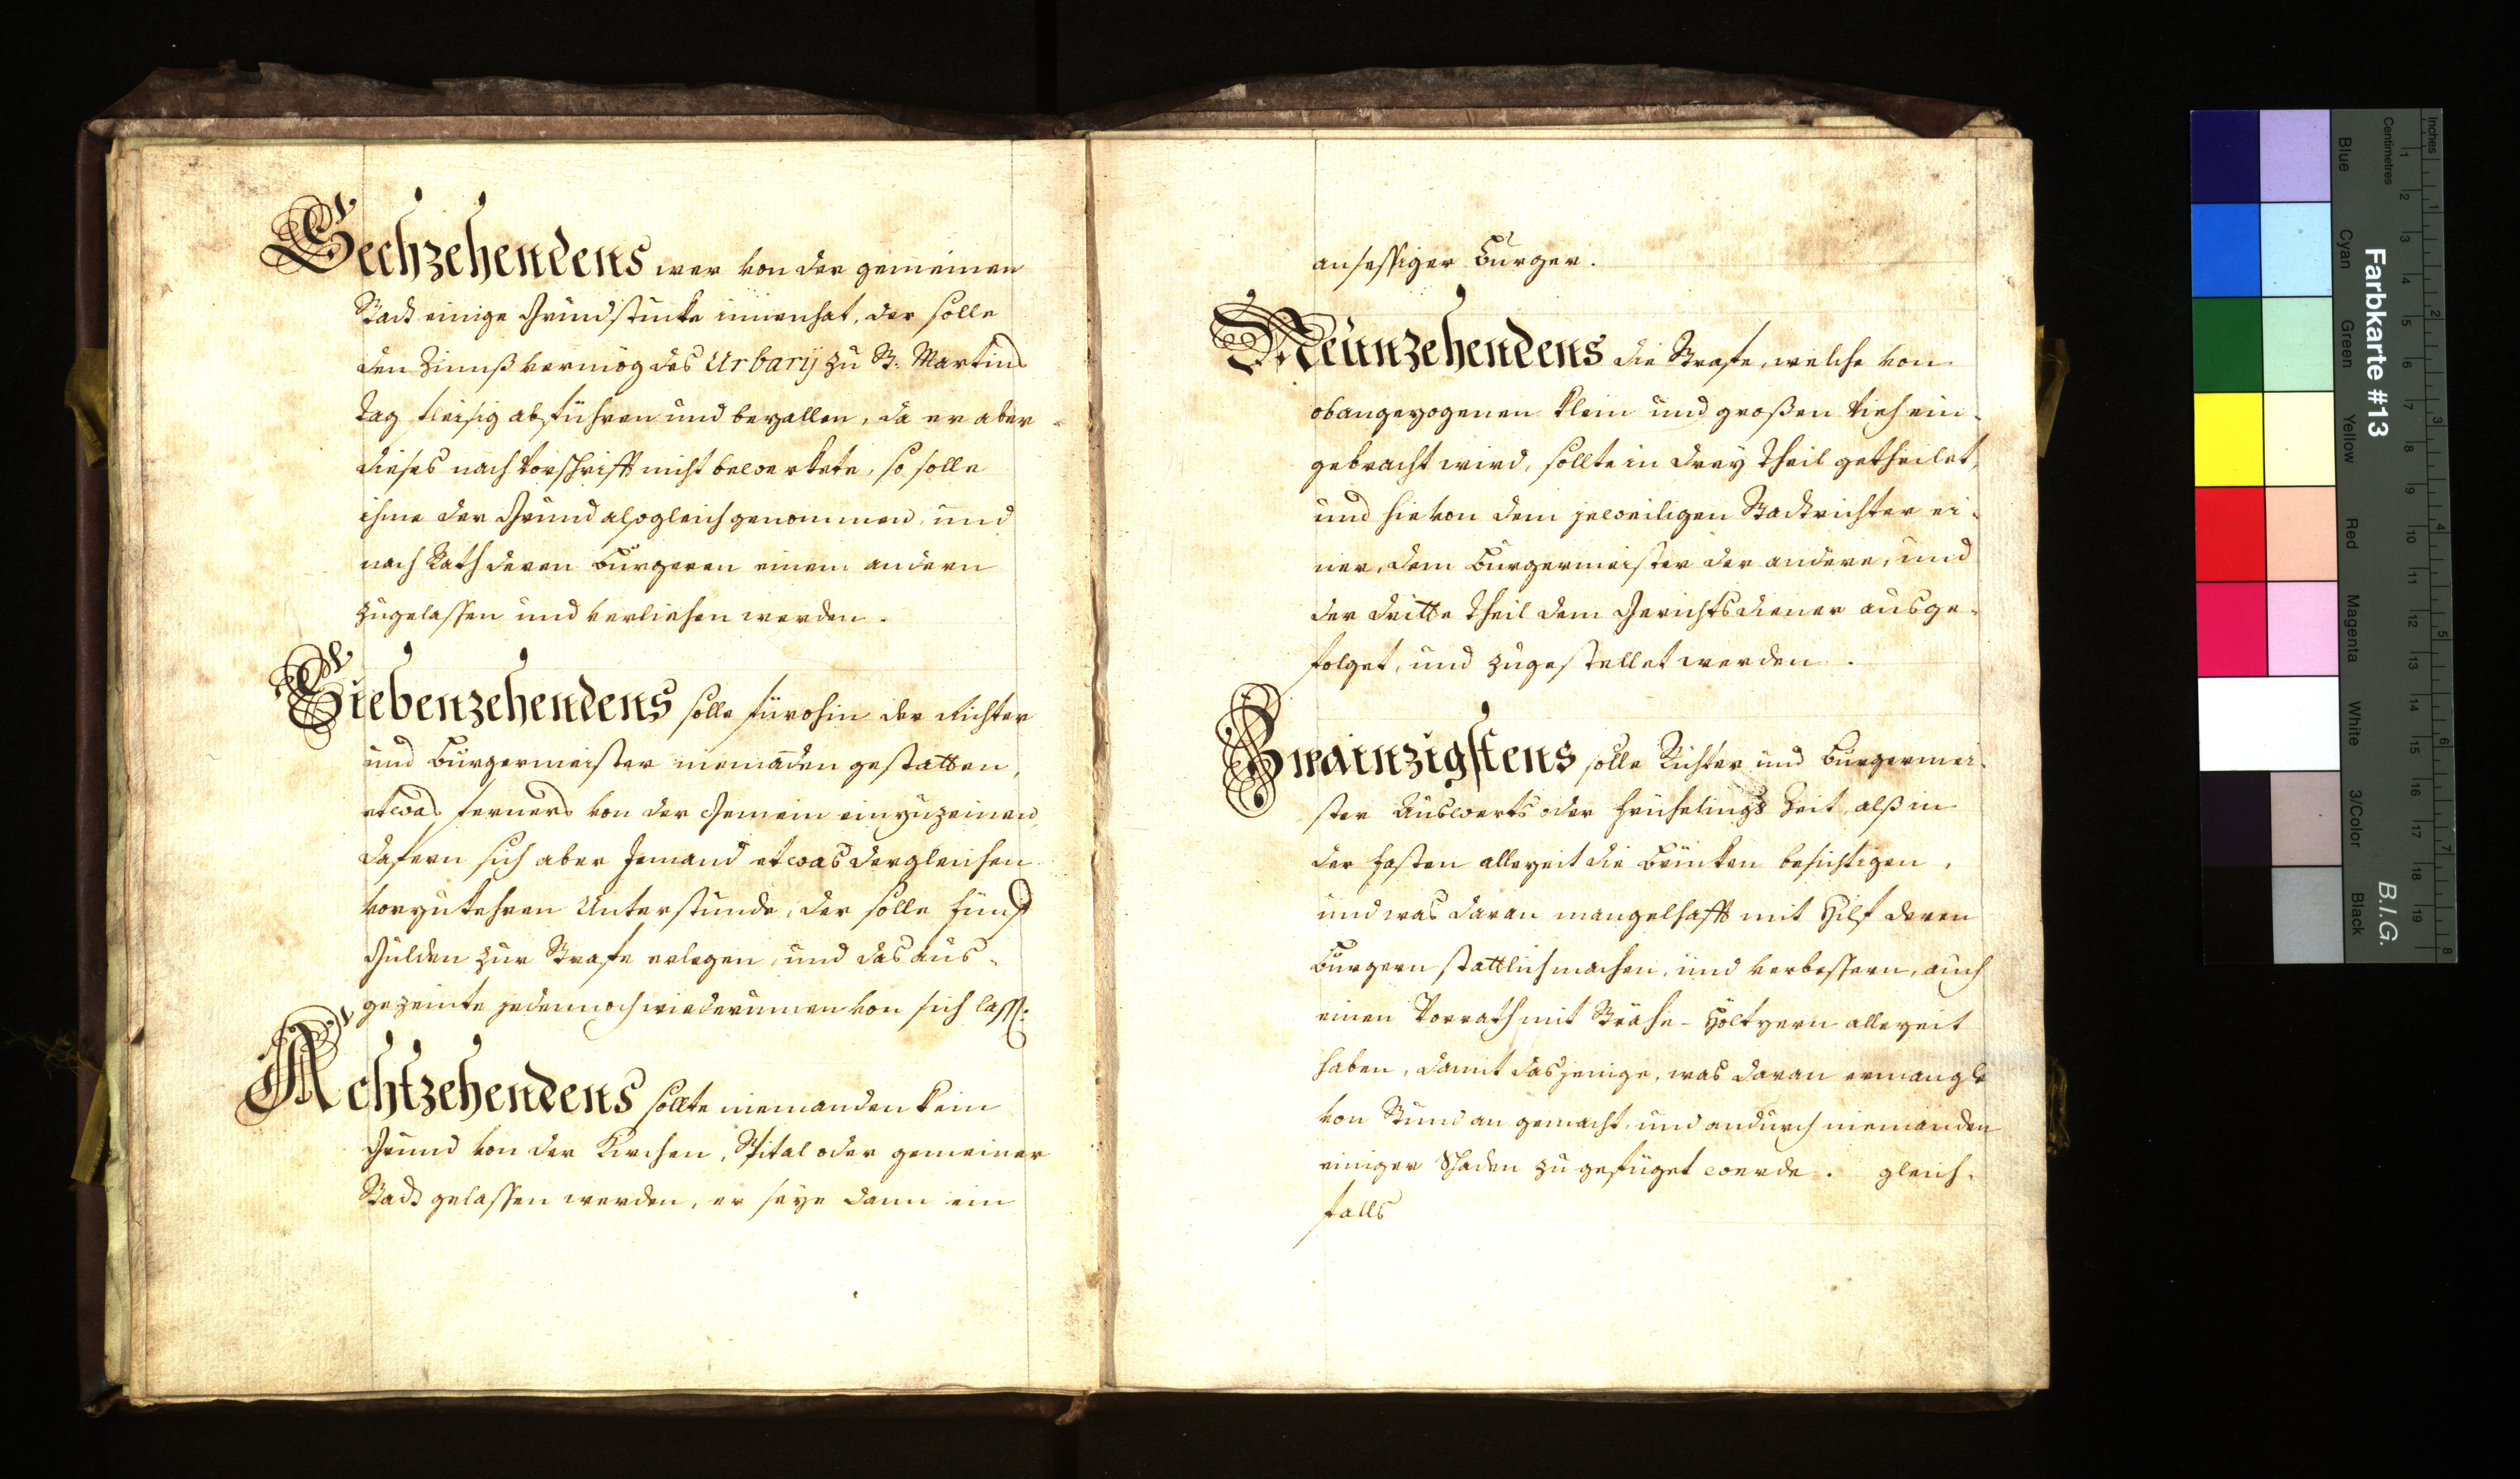 Sechzehendens wer von der gemeinen
Stadt einige Grundstucke innenhat, der solle
den Zinnß vermög des Urbarij zu St. Martins
Tag fleisig abführen und bezallen, da er aber
dieses nach Vorschrifft nicht bewerkete, so solle
ihme der Grund alsogleich genommen, und
nach Rath deren Burgeren einem andern
zugelassen und verliehen werden.
Siebenzehendens solle fürohin der Richter
und Burgermeister niemanden gestatten,
etwas ferners von der Gemein einzuzeinen,
dafern sich aber Jemand etwas dergleichen
vorzukehren Unterstunde, der solle fünf
Gulden zur Strafe erlegen, und das aus-
gezeinte jedennoch wiederummen von sich lass:
Achtzehendens sollte niemanden kein
Grund von der Kirchen, Spital oder gemeiner
Stadt gelassen werden, er seye dann ein
ansessiger Burger.
Neünzehendens die Strafe, welche von
obangezogenen klein und großen Vieh ein-
gebracht wird, sollte in drey Theil getheilet,
und hievon dem jeweiligen Stadtrichter ei-
ner, dem Burgermeister der andere, und
der dritte Theil dem Gerichtsdiener ausge-
folget, und zugestellet werden.
Zwainzigstens solle Richter und Burgermei-
ster Auswerts oder Frühelings Zeit, alß in
der Fasten allezeit die Brücken besichtigen,
und was daran mangelhafft mit Hilf deren
Burgern stattlich machen, und verbessern, auch
einen Vorrath mit Höltzern allezeit
haben, damit dasjenige, was daran ermangle
von Stund an gemacht, und andurch niemanden
einiger Schaden zugefüget werde. gleich-
falls
Farbkarte #13
B.I.G.
Inches
Centimetres
Blue
Cyan
Green
Yellow
Red
Magenta
White
3/Color
Black
1 2 3 4 5 6 7 8 9 10 11 12 13 14 15 16 17 18 19
1 2 3 4 5 6 7 8